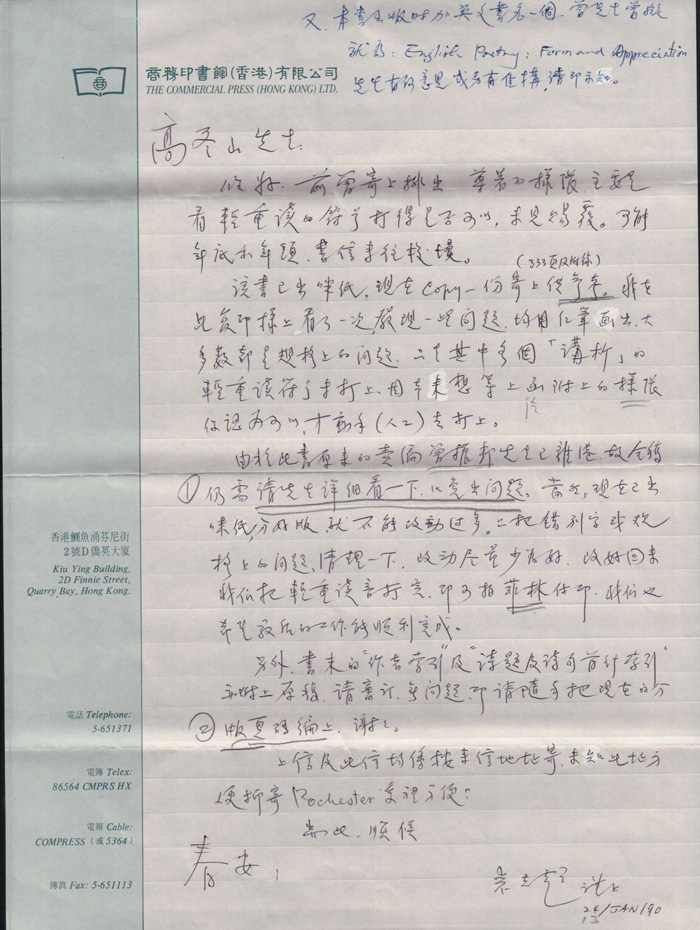 又,本書出版時加英文書名一個,曾先生曾擬
就為:English Poetry: Form and Appreciation
先生有何意見或另有佳構,請即示知。
商務印書館(香港)有限公司
THE COMMERCIAL PRESS (HONG KONG) LTD.
高冬山先生:
你好。前曾寄上排出尊著的樣張,主要是
看輕重讀的符号打得是否可以,未見賜覆。了解
年底和年頭,書信來往較慢。
(333頁及附錄)
該書已出咪紙,現在Copy一份寄上供參考。我在
此复印樣上看了一次,發現一些問題,均用紅筆画出,大
多數都是規格上的問題,只是其中多個「講析」的
輕重讀符号未打上,因本來想等上函附上的樣張
你認為可以,才動手(人工)去打上。
由於此書原來的責編曾振邦先生已離港,故全稿
①仍需請先生詳細看一下,以免出問題。當然,現在已出
咪紙,分好版,就不能改動過多,只把錯別字或規
格上的問題,清理一下,改動尽量少為好,改好回來
我們把輕重讀音打完,即可拍菲林付印,我們也
希望最后的工作能順利完成。
另外,書末的"作者索引"及"詩題及詩句首行索引"
亦附上原稿,請審訂,無問題,即請隨手把現在的分
②版頁码編上,謝謝。
上信及此信均係按來信地址寄,未知此地方
便抑寄Rochester家裡方便?
耑此,順候
春安!
袁 謹上
24/JAN/90
香港鰂魚涌芬尼街
2號D僑英大厦
Kiu Ying Building,
2D Finnie Street,
Quarry Bay, Hong Kong.
電話 Telephone:
5-651371
電傳 Telex:
86564 CMPRS HX
電報 Cable:
COMPRESS(或5364)
傳眞 Fax: 5-651113